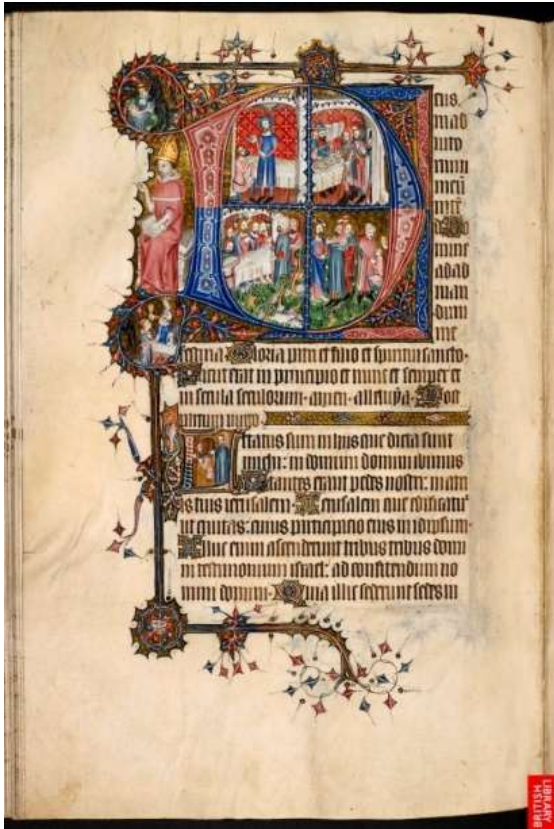 eus
in ad
iuto
rium
meū
inte
de Do
mine
ad ad
iuu
dum
me
festina Gloria patri et filio et spiritui sancto
Sicut erat in principio et nunc et semper et
in secula seculorum amen alleluya Post
partum uirgo
Letatus sum in hiis que dicta sunt
michi: in domum domini ibimus
Stantes erant pedes nostri: in atri
is tuis ierusalem Ierusalem que edificatur
ut ciuitas: cuius participacio eius in idipsum
Illuc enim ascenderunt tribus tribus domi
ni testimonium israel: ad confitendum no
mini domini Quia illic sederunt sedes in
BRITISH
LIBRARY